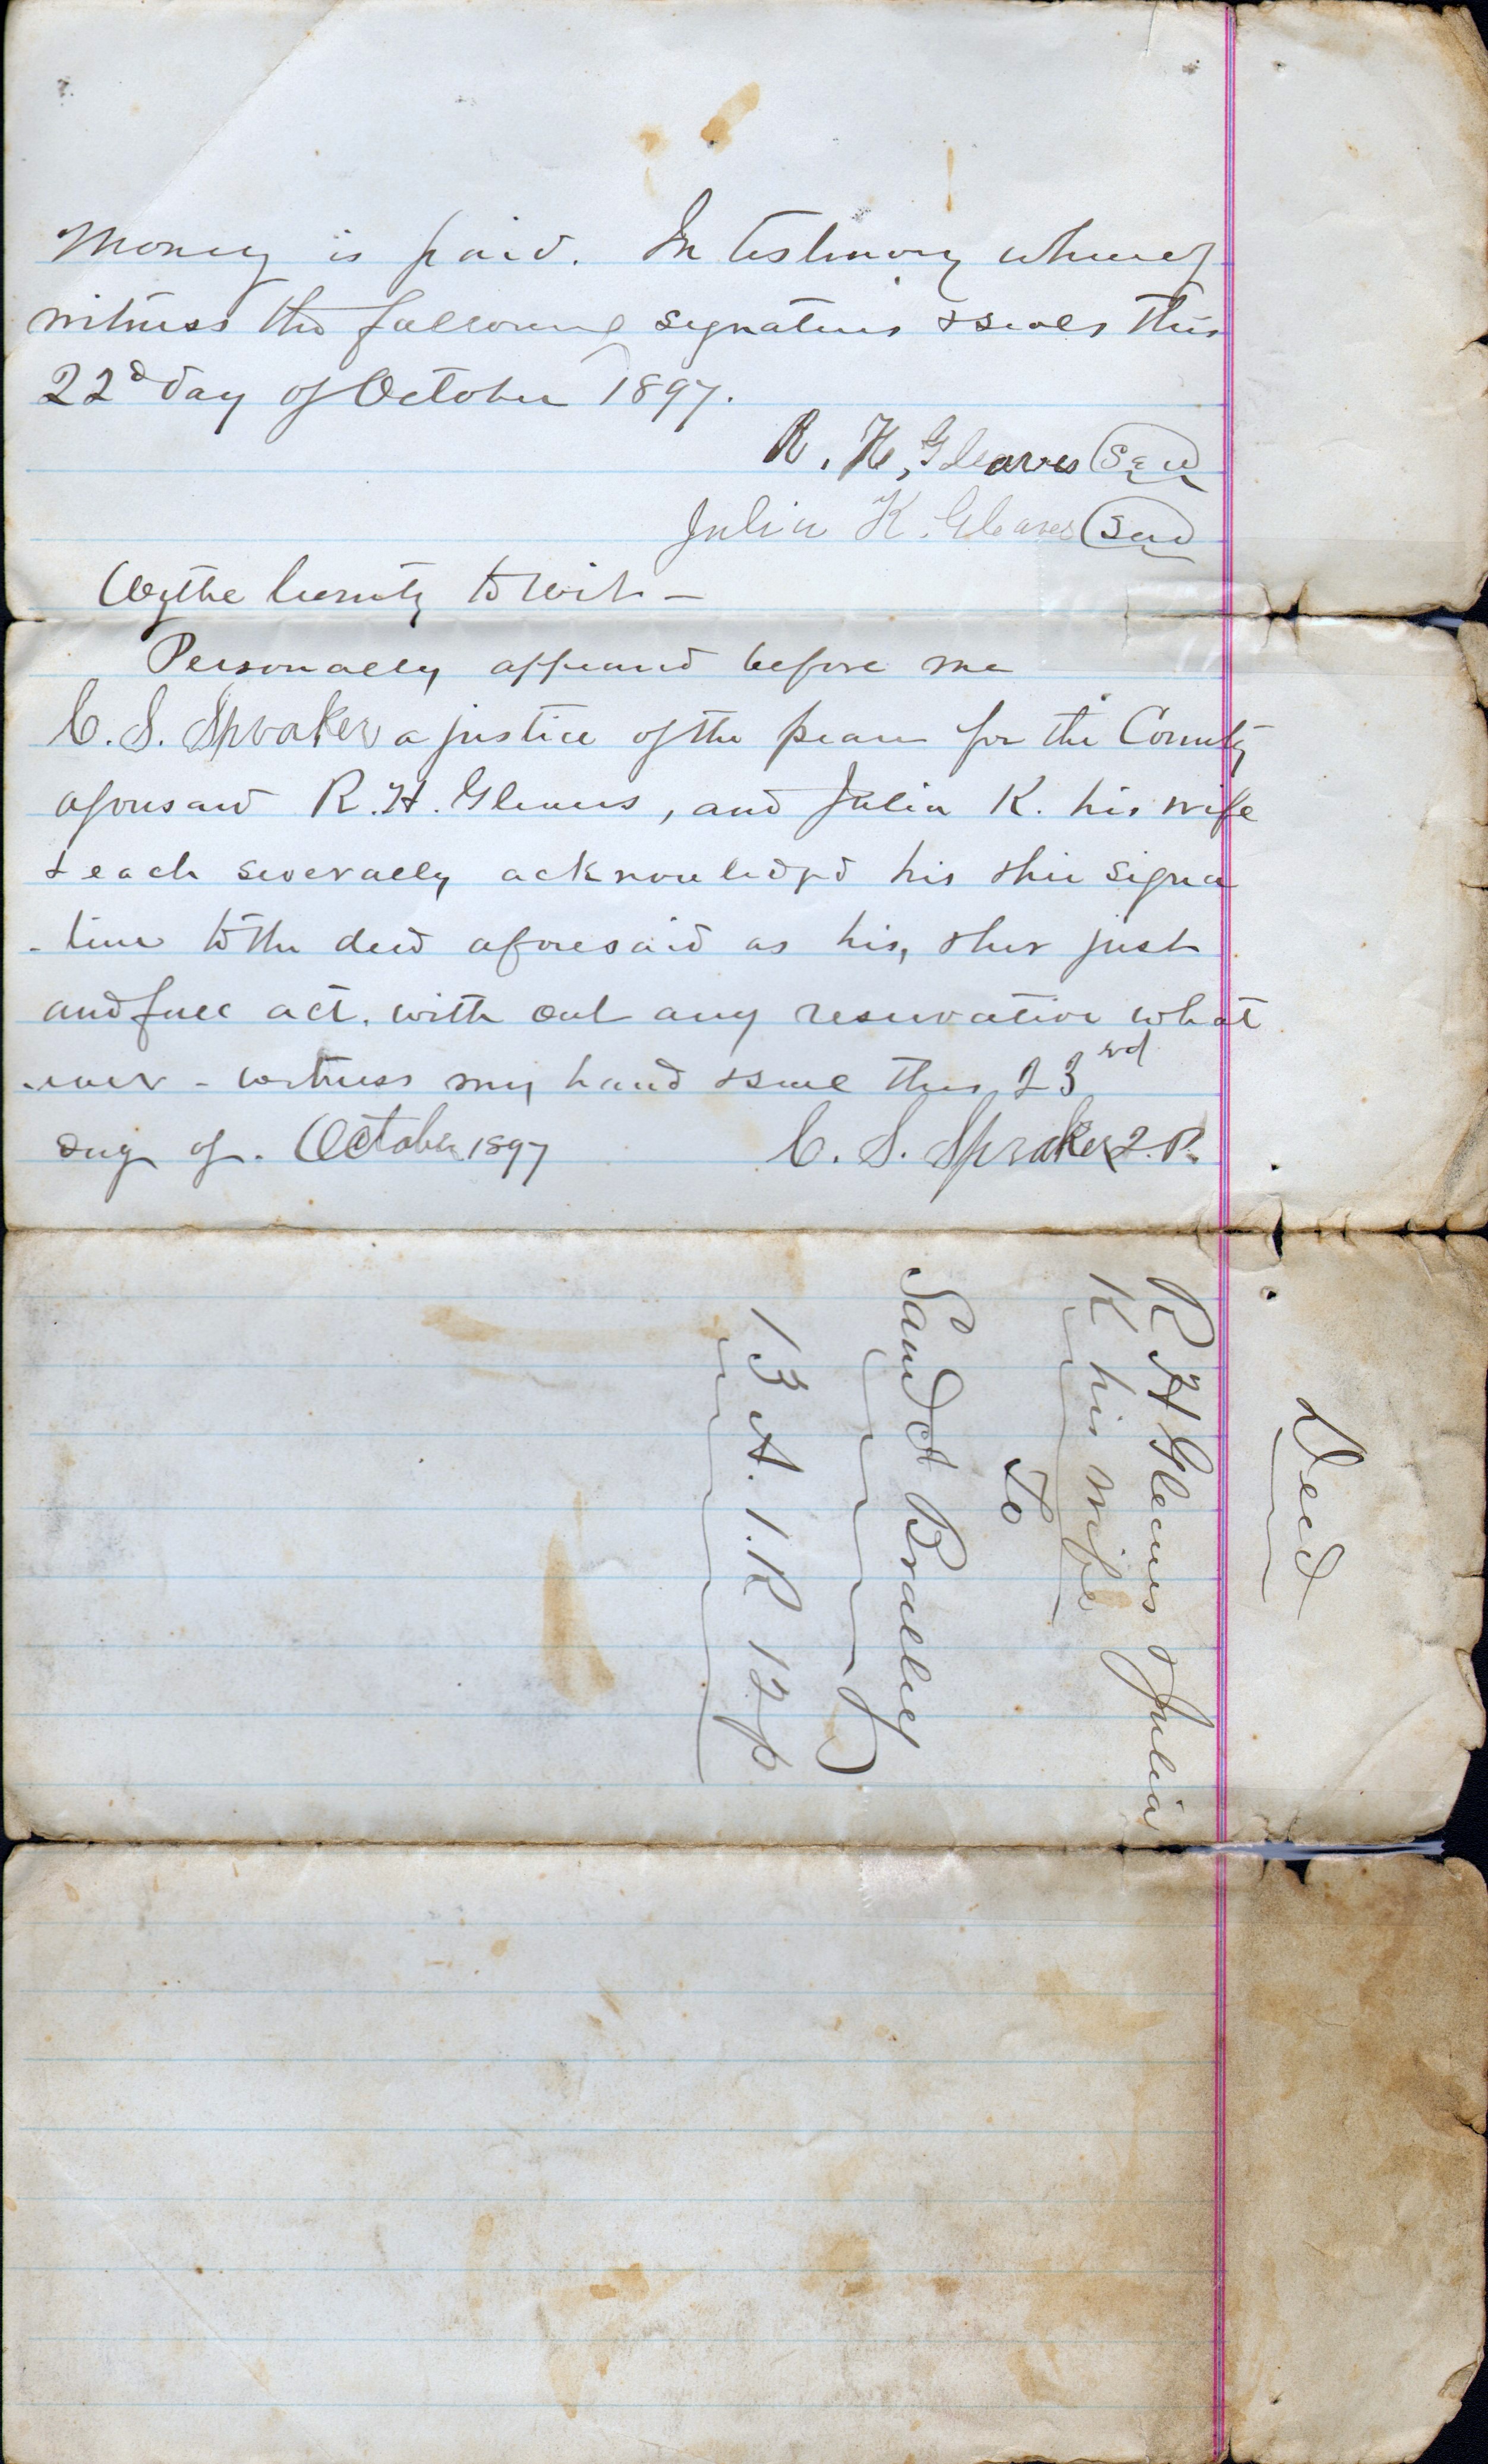 Money is paid. In testimony whereof
witness the following signatures & seals this
22d day of October 1897.
R. H. Gleaves Seal
Julia K. Gleaves Seal
Wythe County to wit -
Personally appeared before me
C. S. Spraker a justice of the peace for the County
aforesaid R. H. Gleaves, and Julia K. his wife
& each severally acknowledged his & her signa
-ture to the deed aforesaid as his, & her just
and full act. with out any reservation what
-ever - witness my hand & seal this 23rd
day of. October 1897 C. S. Spraker J. P.
Deed
R H Gleaves & Julia
K his wife
To
Sand A Bralley
13 A. 1. R 12 p